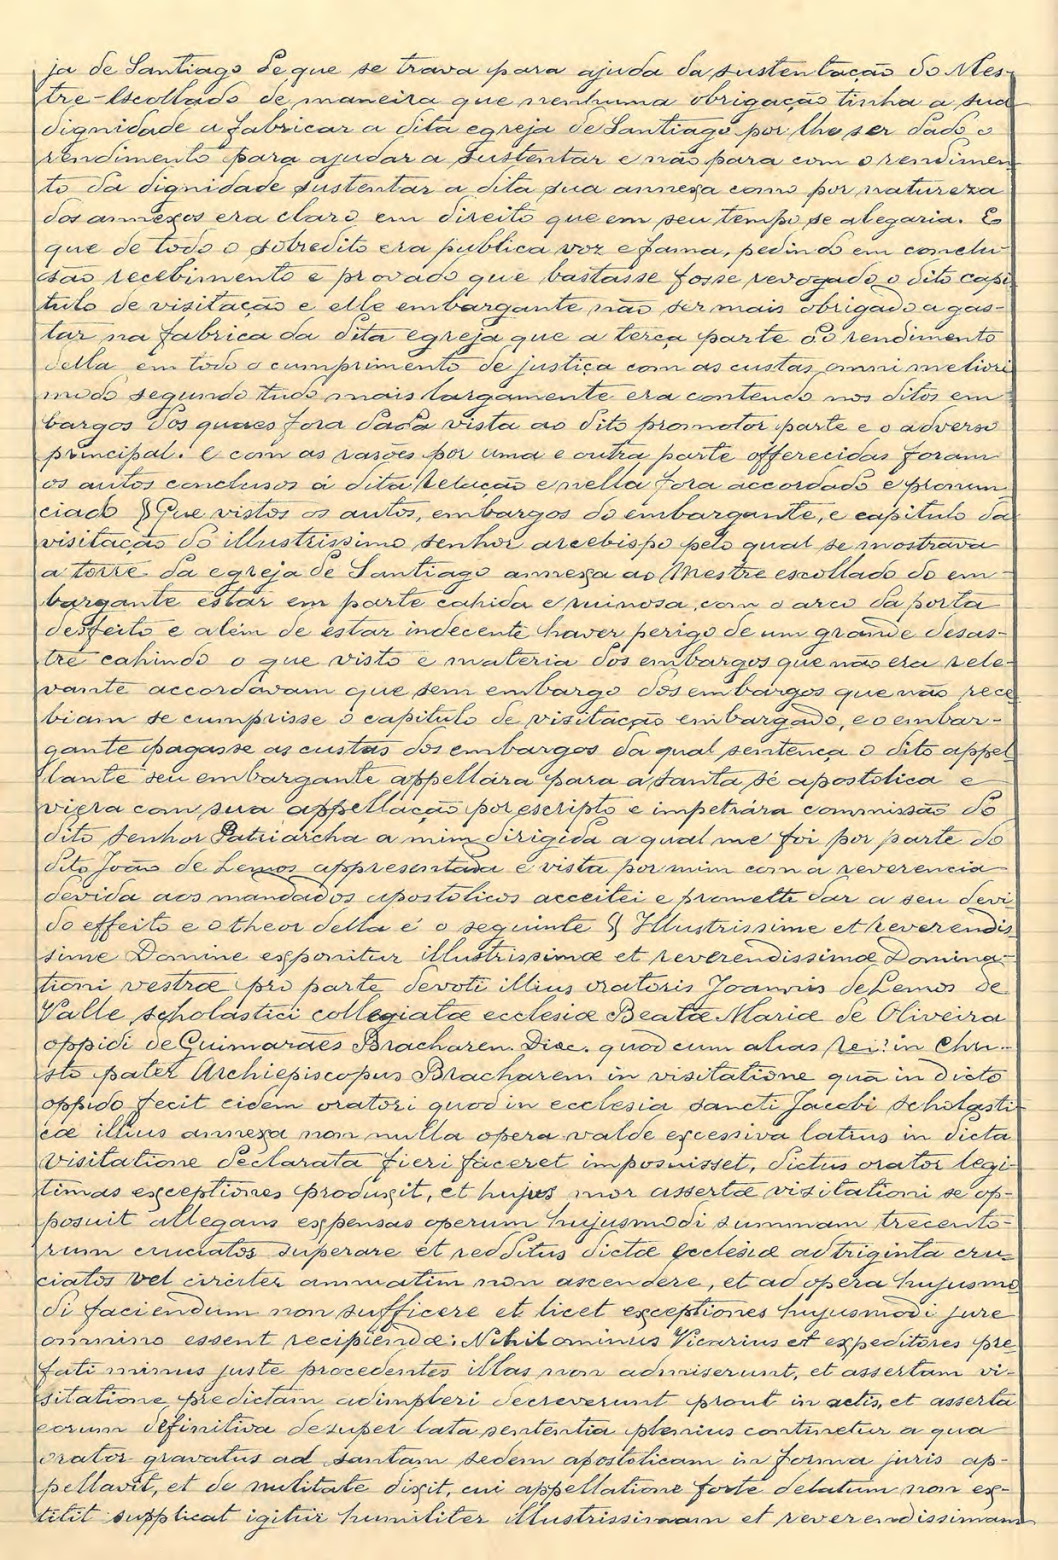 ja de Santiago de que se trava para ajuda da sustentação do Mes-
tre-Escollado de maneira que nenhuma obrigação tinha a sua
dignidade a fabricar a dita egreja de Santiago por lhe ser dado o
rendimento para ajudar a sustentar e não para com o rendimen-
to da dignidade sustentar a dita sua annexa como por natureza
dos annexos era claro em direito que em seu tempo se alegaria. E
que de todo o sobredito era publica voz e fama, pedindo em conclu-
são recebimento e provado que bastasse fosse revogado o dito capi
tulo de visitação e elle embargante não ser mais obrigado a gas-
tar na fabrica da dita egreja que a terça parte do rendimento
della, em todo o cumprimento de justiça com as custas omni meliori
modo segundo tudo mais largamente era contendo nos ditos em
bargos dos quaes fora dada vista ao dito promotor parte e o adverso
principal. E com as rasões por uma e outra parte offerecidas foram
os autos conclusos á dita Relação e nella fora accordado e pronun
ciado § Que vistos os autos, embargos do embargante, e capitulo da
visitação do illustrissimo senhor arcebispo pelo qual se mostrava
a torre da egreja de Santiago annexa ao Mestre escollado do em-
bargante estar em parte cahida e ruinosa, com o arco da porta
desfeito e além de estar indecente haver perigo de um grande desas-
tre cahindo o que visto e materia dos embargos que não era rele-
vante accordavam que sem embargo dos embargos que não rece
biam se cumprisse o capitulo de visitação embargado, e o embar-
gante pagasse as custas dos embargos da qual sentença o dito appel
lante seu embargante appellára para a santa sé apostolica e
viera com sua appellação por escripto e impetrára commissão do
dito senhor Patriarcha a mim dirigida a qual me foi por parte do
dito João de Lemos appresentada e vista por mim com a reverencia
devida aos mandados apostolicos acceitei e promette dar a seu devi
do effeito e o theor della é o seguinte § Illustrissime et Reverendis
sime Domine exponitur illustrissimæ et reverendissimæ Domina-
tioni vestræ pro parte devoti illius oratoris Joannis de Lemos de
Valle scholastici collegiatæ ecclesiæ Beatæ Mariæ de Oliveira
oppidi de Guimarães Bracharen. Dioc. quod cum alias Rei? in Chri-
sto pater Archiepiscopus Bracharem in visitatione quā in dicto
oppido fecit eidem oratori quod in ecclesia sancti Jacobi scholasti
cæ illius annexa non nulla opera valde excessiva latius in dicta
visitatione declarata fieri faceret imposuisset, dictus orator legi-
timas exceptiones produxit, et hujus mor assertæ visitationi se op-
posuit allegans expensas operum hujusmodi summam trecento-
rum cruciatos superare et redditus dictæ ecclesiæ ad triginta cru-
ciatos vel circiter annuatim non ascendere, et ad opera hujusmo
di faciendum non sufficere et licet exceptiones hujusmodi jure
omnino essent recipiendæ: Nihil ominus Vicarius et expeditores pre
fati minus juste procedentes illas non admiserunt, et assertam vi-
sitatione predictam adimpleri decreverunt prout in actis, et asserta
eorum definitiva desuper lata sententia plenius continetur a qua
orator gravatus ad santam sedem apostolicam in forma juris ap-
pellavit, et de nulitate dixit, cui appellatione forte delatum non ex-
titit supplicat igitur humiliter illustrissimam et reverendissimam